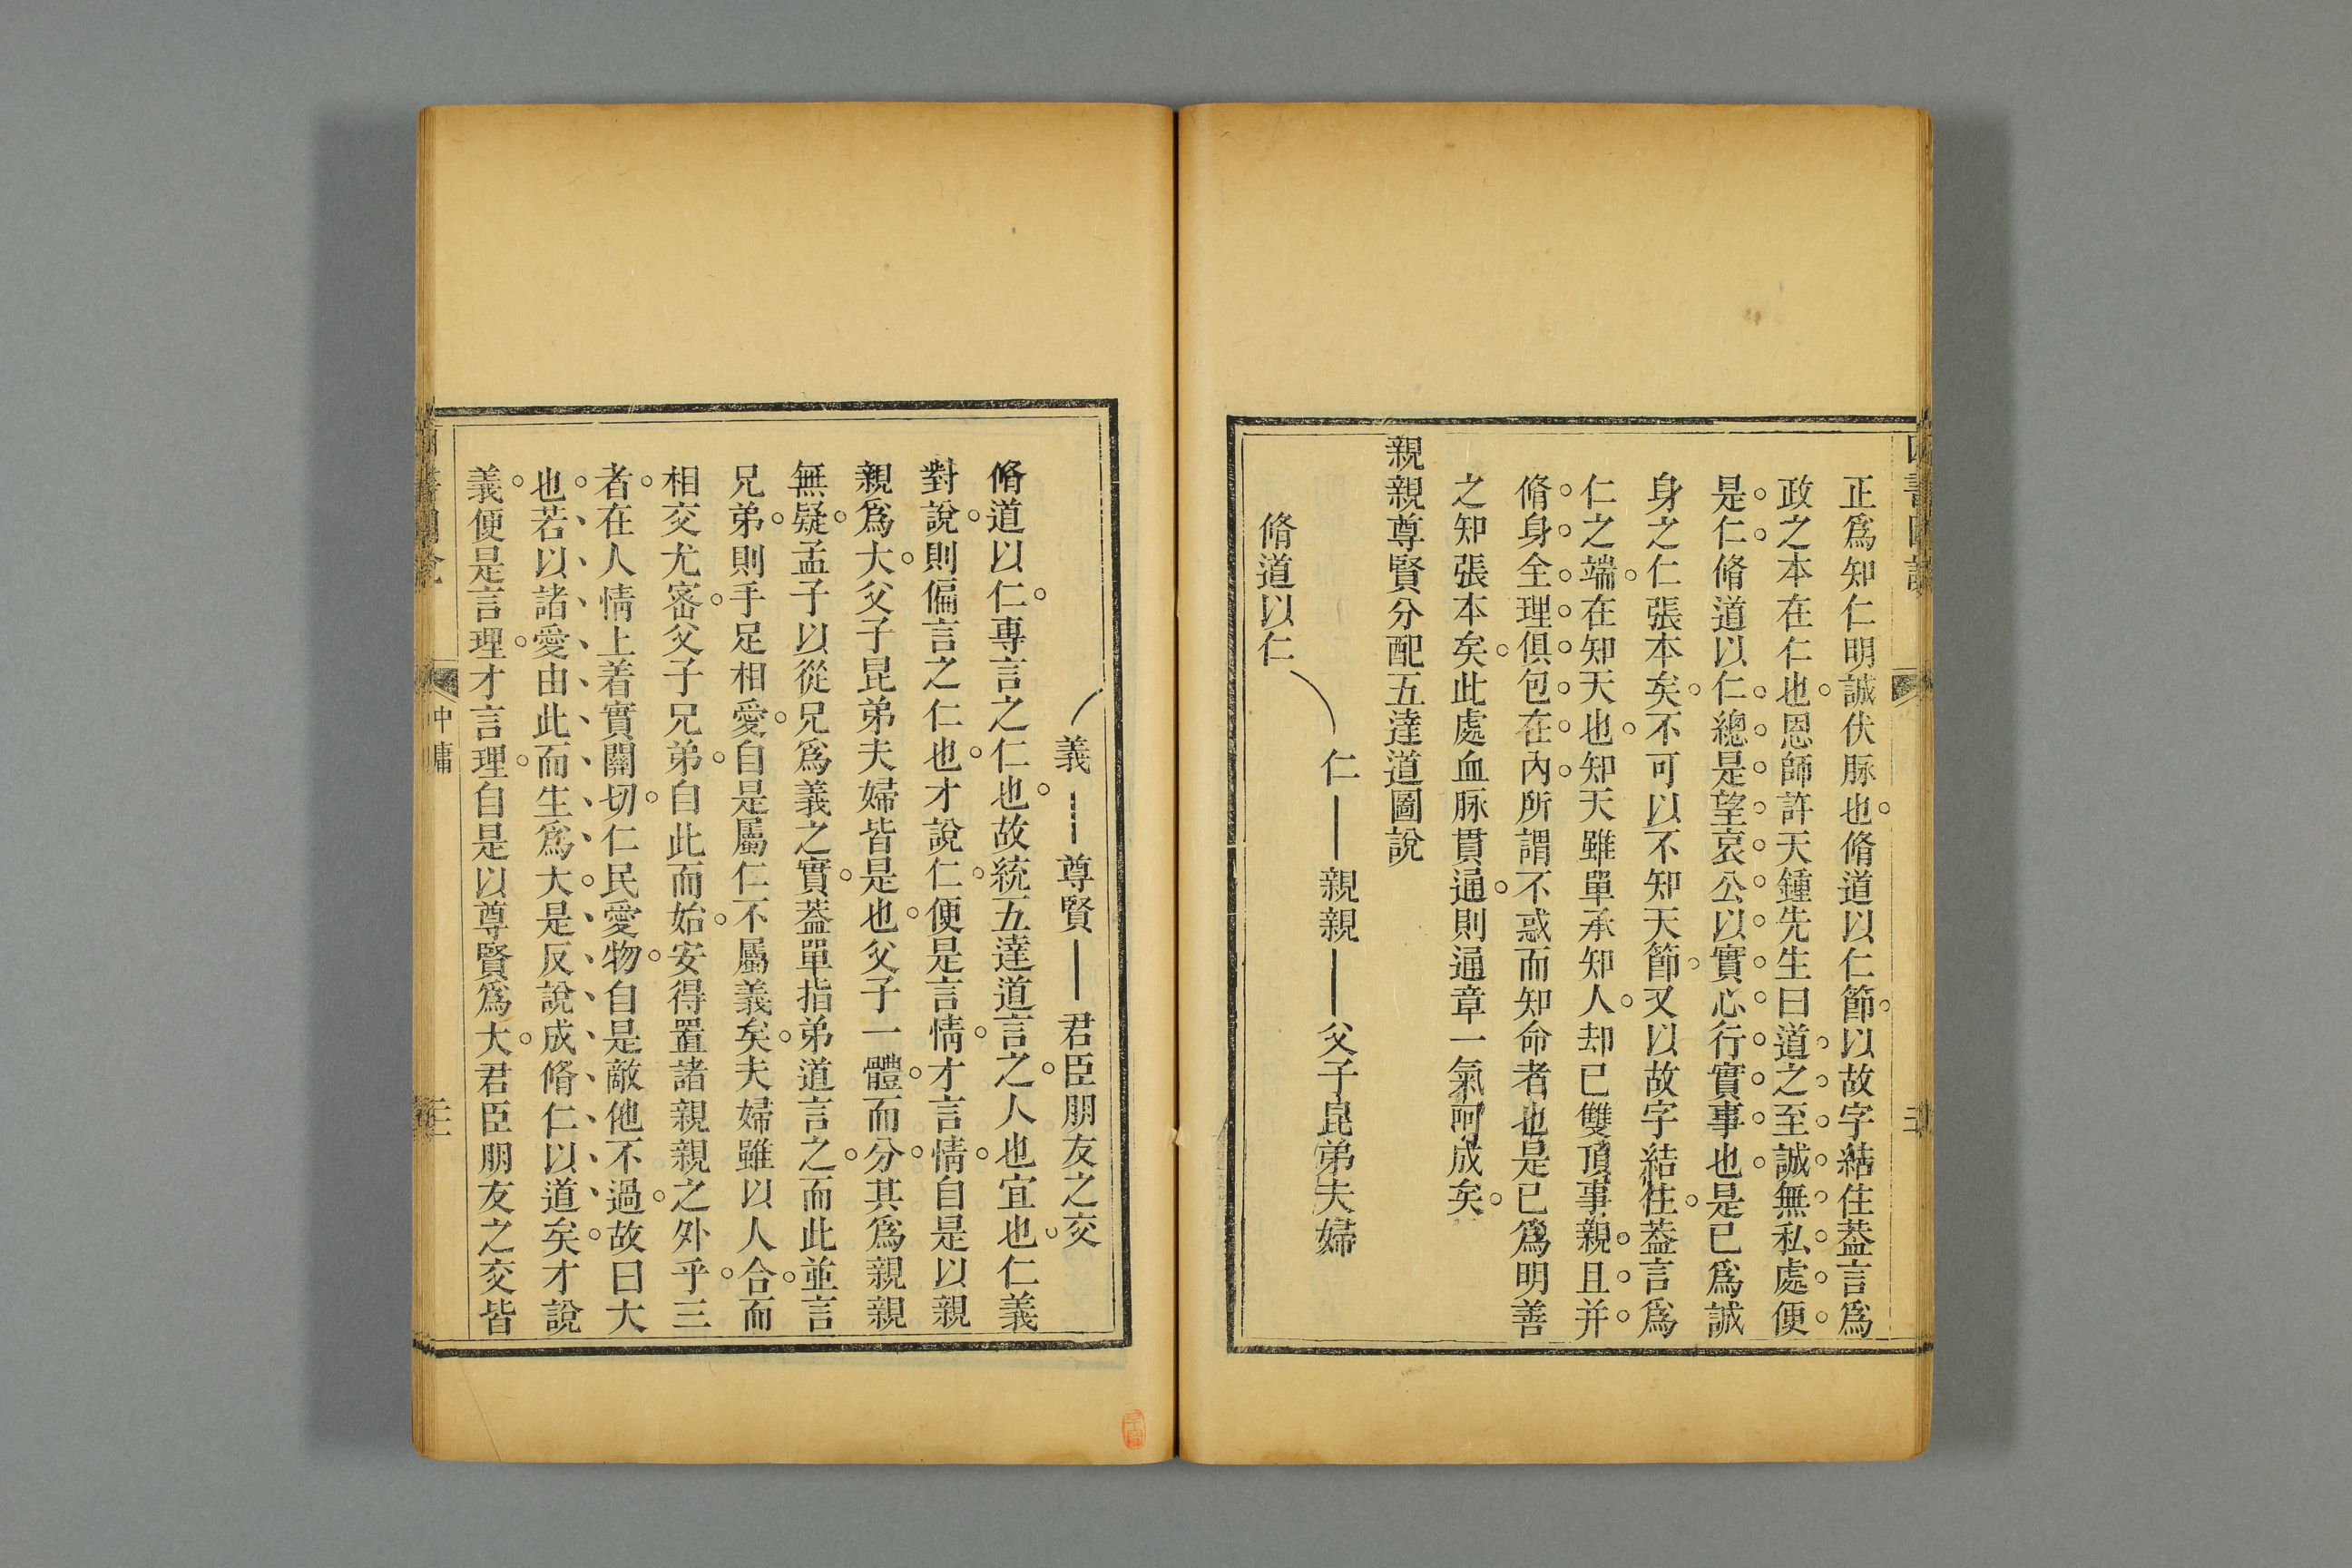 正爲知仁明誠伏脉也。脩道以仁節。以故字結住。葢言爲
政之本在仁也。恩師許天鍾先生曰道之至誠無私處便
是仁脩道以仁總是望哀公以實心行實事也是已爲誠
身之仁張本矣。不可以不知天節。又以故字結住。葢言爲
仁之端。在知天也。知天雖單承知人。却已雙頂事親且并
脩身全理俱包在內。所謂不惑而知命者也是已爲明善
之知張本矣。此處血脉貫通。則通章一氣呵成矣。
親親尊賢分配五達道圖說
仁——親親——父子昆弟夫婦
脩道以仁
義——尊賢——君臣朋友之交
脩道以仁。專言之仁也。故統五達道言之。人也宜也。仁義
對說。則偏言之仁也。才說仁。便是言情。才言情。自是以親
親爲大。父子昆弟夫婦皆是也。父子一體。而分。其爲親親
無疑。孟子以從兄爲義之實。葢單指弟道言之。而此並言
兄弟。則手足相愛。自是屬仁不屬義矣。夫婦雖以人合。而
相交尤密。父子兄弟。自此而始。安得置諸親親之外乎。三
者。在人情上着實關切。仁民愛物。自是敵他不過。故曰大
也。若以諸愛由此而生爲大。是反說成脩仁以道矣。才說
義。便是言理。才言理。自是以尊賢爲大。君臣朋友之交皆
中庸